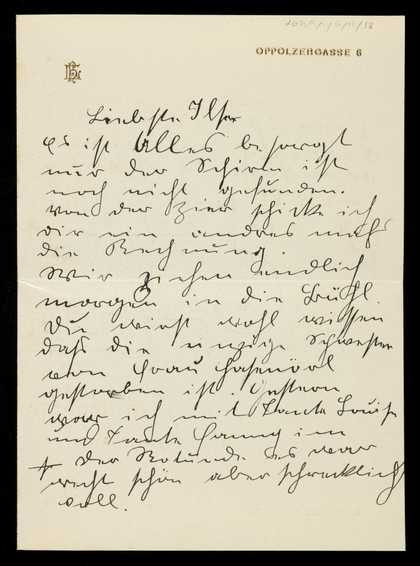 OPPOLZERGASSE 6
Liebste Ilse
es ist Alles besorgt
nur der Schirm ist
noch nicht gefunden.
von der Zier schicke ich
dir ein andres mal
die Rechnung.
Wir ziehen endlich
morgen in die Brühl.
Du wirst wohl wissen
daß die einzige Schwester
von Frau Hasenörl
gestorben ist. Gestern
war ich mit Tante Louise
und Tante Fanny im
der Rotunde es war
recht schön aber schrecklich
voll.